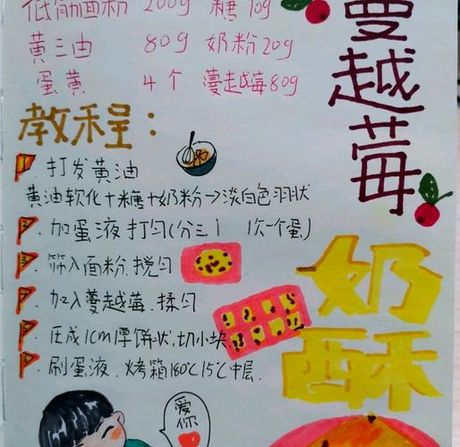 低筋面粉 200g 糖 10g
黄油 80g 奶粉 20g
蛋黄 4个 蔓越莓 80g
蔓越莓
奶酥
教程:
1. 打发黄油
黄油软化+糖+奶粉→淡白色羽状
2. 加蛋液打匀(分三 1次一个蛋)
3. 筛入面粉.搅匀
4. 加入蔓越莓.揉匀
压成1cm厚饼状.切小块
刷蛋液.烤箱180℃15℃中层.
爱你